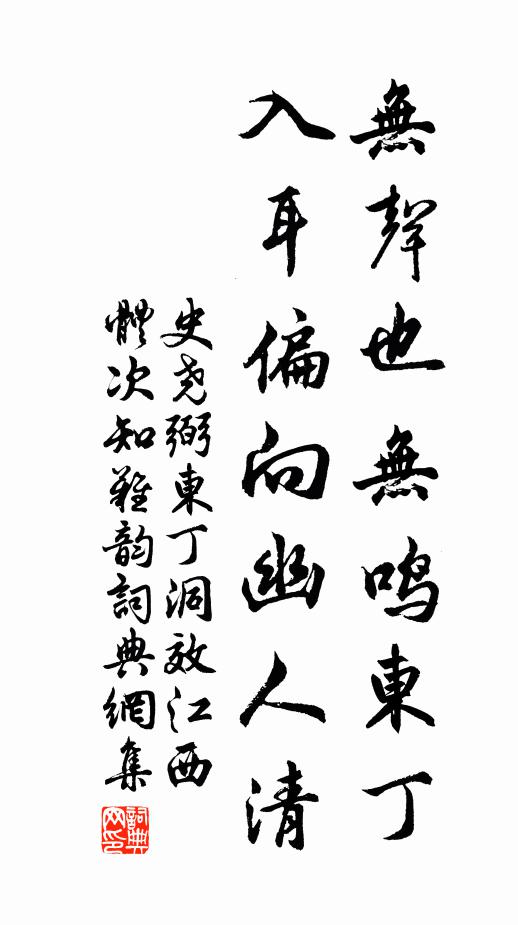 無聲也無鳴東丁
入耳偏向幽人清
史尧弼東丁洞效江西
體次知難韵詞典網集
詞典
网印